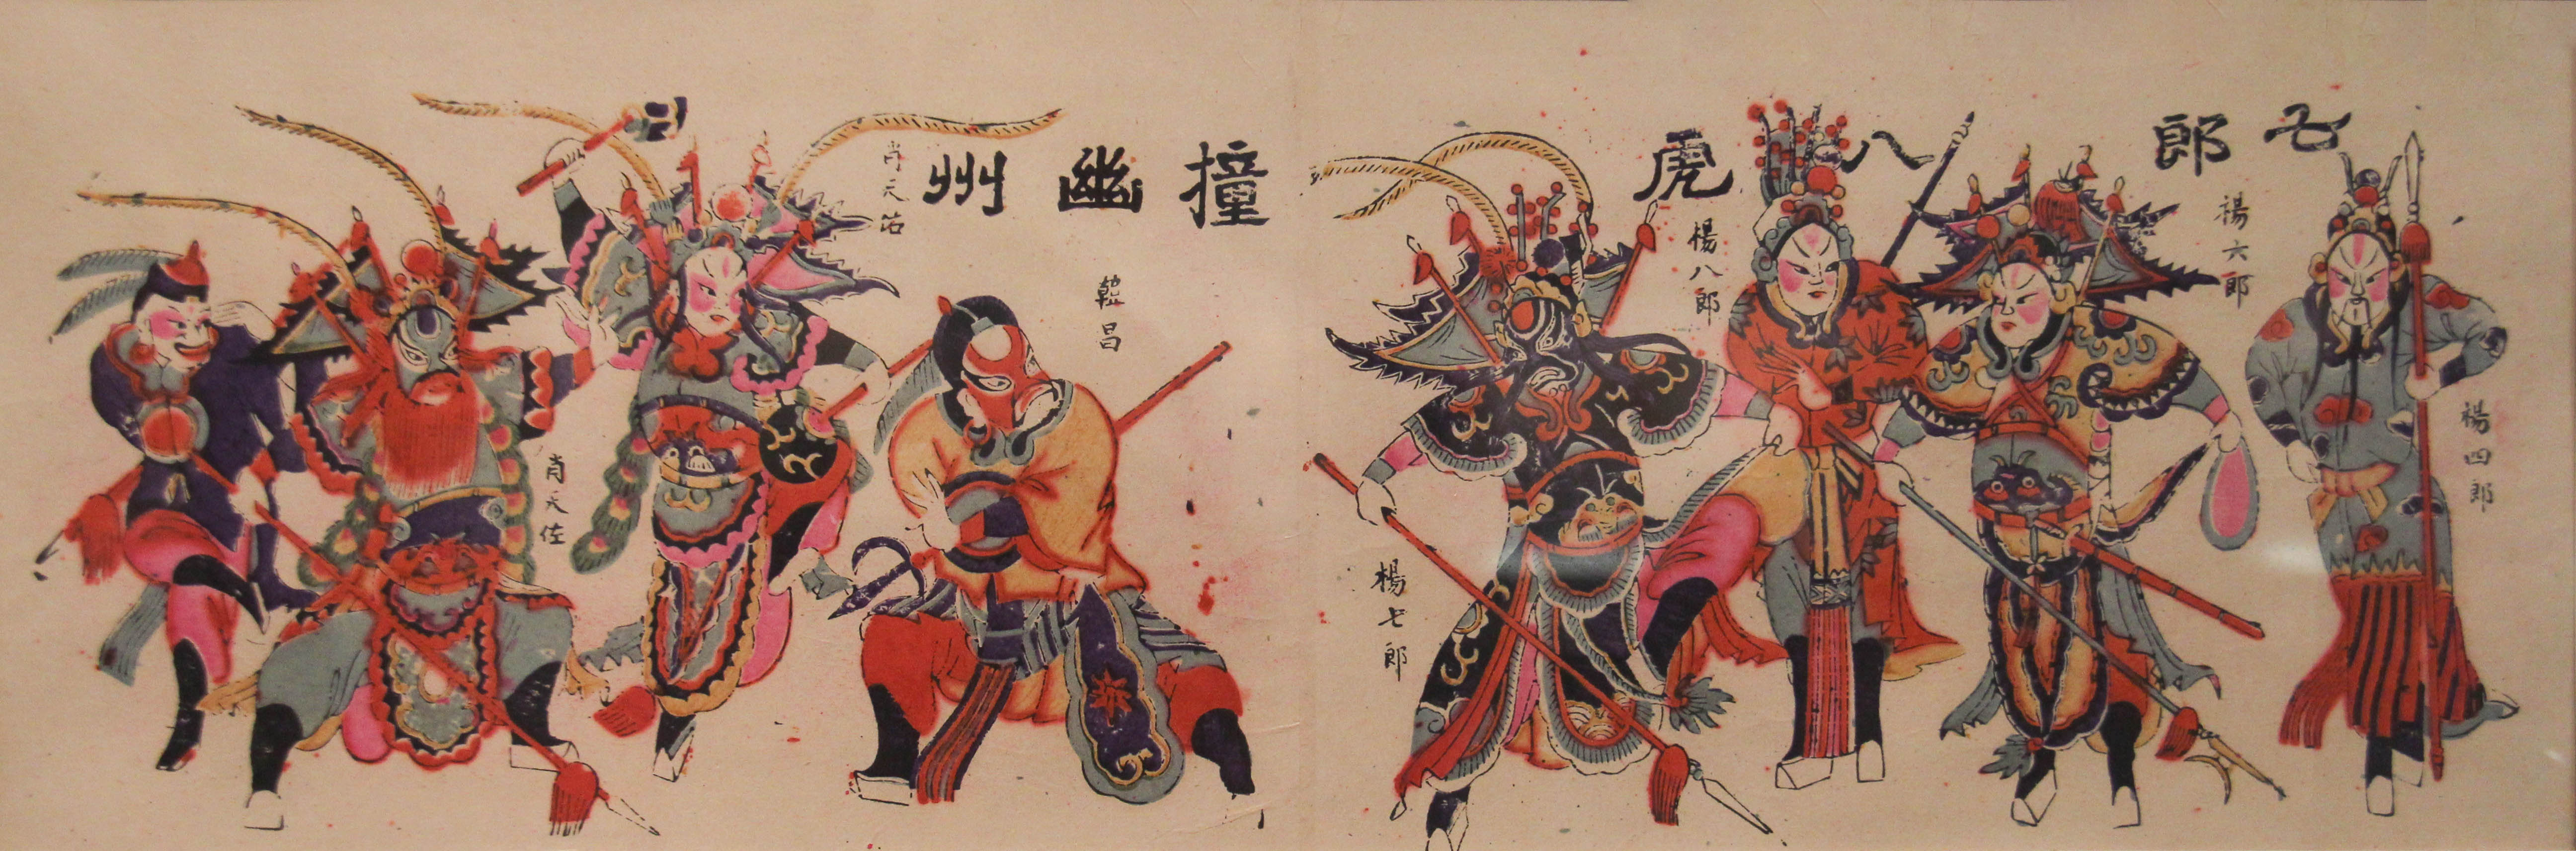 七郎八虎
撞幽州
楊四郎
楊六郎
楊八郎
楊七郎
韓昌
肖天佑
肖天佐